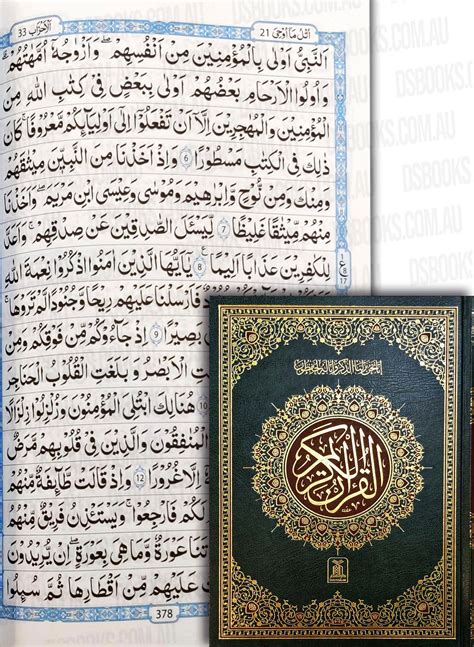 اُتْلُ مَاۤ اُوْحِيَ 21
اَلْاَحْزَاب 33
اَلنَّبِيُّ اَوْلٰى بِالْمُؤْمِنِيْنَ مِنْ اَنْفُسِهِمْ وَاَزْوَاجُهٗۤ اُمَّهٰتُهُمْ
وَاُولُوا الْاَرْحَامِ بَعْضُهُمْ اَوْلٰى بِبَعْضٍ فِيْ كِتٰبِ اللّٰهِ مِنَ
الْمُؤْمِنِيْنَ وَالْمُهٰجِرِيْنَ اِلَّاۤ اَنْ تَفْعَلُوْۤا اِلٰۤى اَوْلِيٰٓئِكُمْ مَّعْرُوْفًا كَانَ
ذٰلِكَ فِي الْكِتٰبِ مَسْطُوْرًا 6 وَاِذْ اَخَذْنَا مِنَ النَّبِيّٖنَ مِيْثَاقَهُمْ
وَمِنْكَ وَمِنْ نُّوْحٍ وَّاِبْرٰهِيْمَ وَمُوْسٰى وَعِيْسَى ابْنِ مَرْيَمَ وَاَخَذْنَا
مِنْهُمْ مِّيْثَاقًا غَلِيْظًا 7 لِّيَسْئَلَ الصّٰدِقِيْنَ عَنْ صِدْقِهِمْ وَاَعَدَّ
لِلْكٰفِرِيْنَ عَذَابًا اَلِيْمًا 8 يٰۤاَيُّهَا الَّذِيْنَ اٰمَنُوا اذْكُرُوْا نِعْمَةَ اللّٰهِ
فَاَرْسَلْنَا عَلَيْهِمْ رِيْحًا وَّجُنُوْدًا لَّمْ تَرَوْهَا
بَصِيْرًا 9 اِذْ جَآءُوْكُمْ مِّنْ فَوْقِكُمْ وَمِنْ
الْاَبْصَارُ وَبَلَغَتِ الْقُلُوْبُ الْحَنَاجِرَ
10 هُنَالِكَ ابْتُلِيَ الْمُؤْمِنُوْنَ وَزُلْزِلُوْا زِلْزَالًا
الْمُنٰفِقُوْنَ وَالَّذِيْنَ فِيْ قُلُوْبِهِمْ مَّرَضٌ
اِلَّا غُرُوْرًا 12 وَاِذْ قَالَتْ طَّآئِفَةٌ مِّنْهُمْ
لَكُمْ فَارْجِعُوْا وَيَسْتَاْذِنُ فَرِيْقٌ مِّنْهُمُ
عَوْرَةٌ وَمَا هِيَ بِعَوْرَةٍ اِنْ يُّرِيْدُوْنَ
عَلَيْهِمْ مِّنْ اَقْطَارِهَا ثُمَّ سُئِلُوا
378
اِنَّا نَحْنُ نَزَّلْنَا الذِّكْرَ وَاِنَّا لَهٗ لَحٰفِظُوْنَ
القرآن الكريم
DSBOOKS.COM.AU